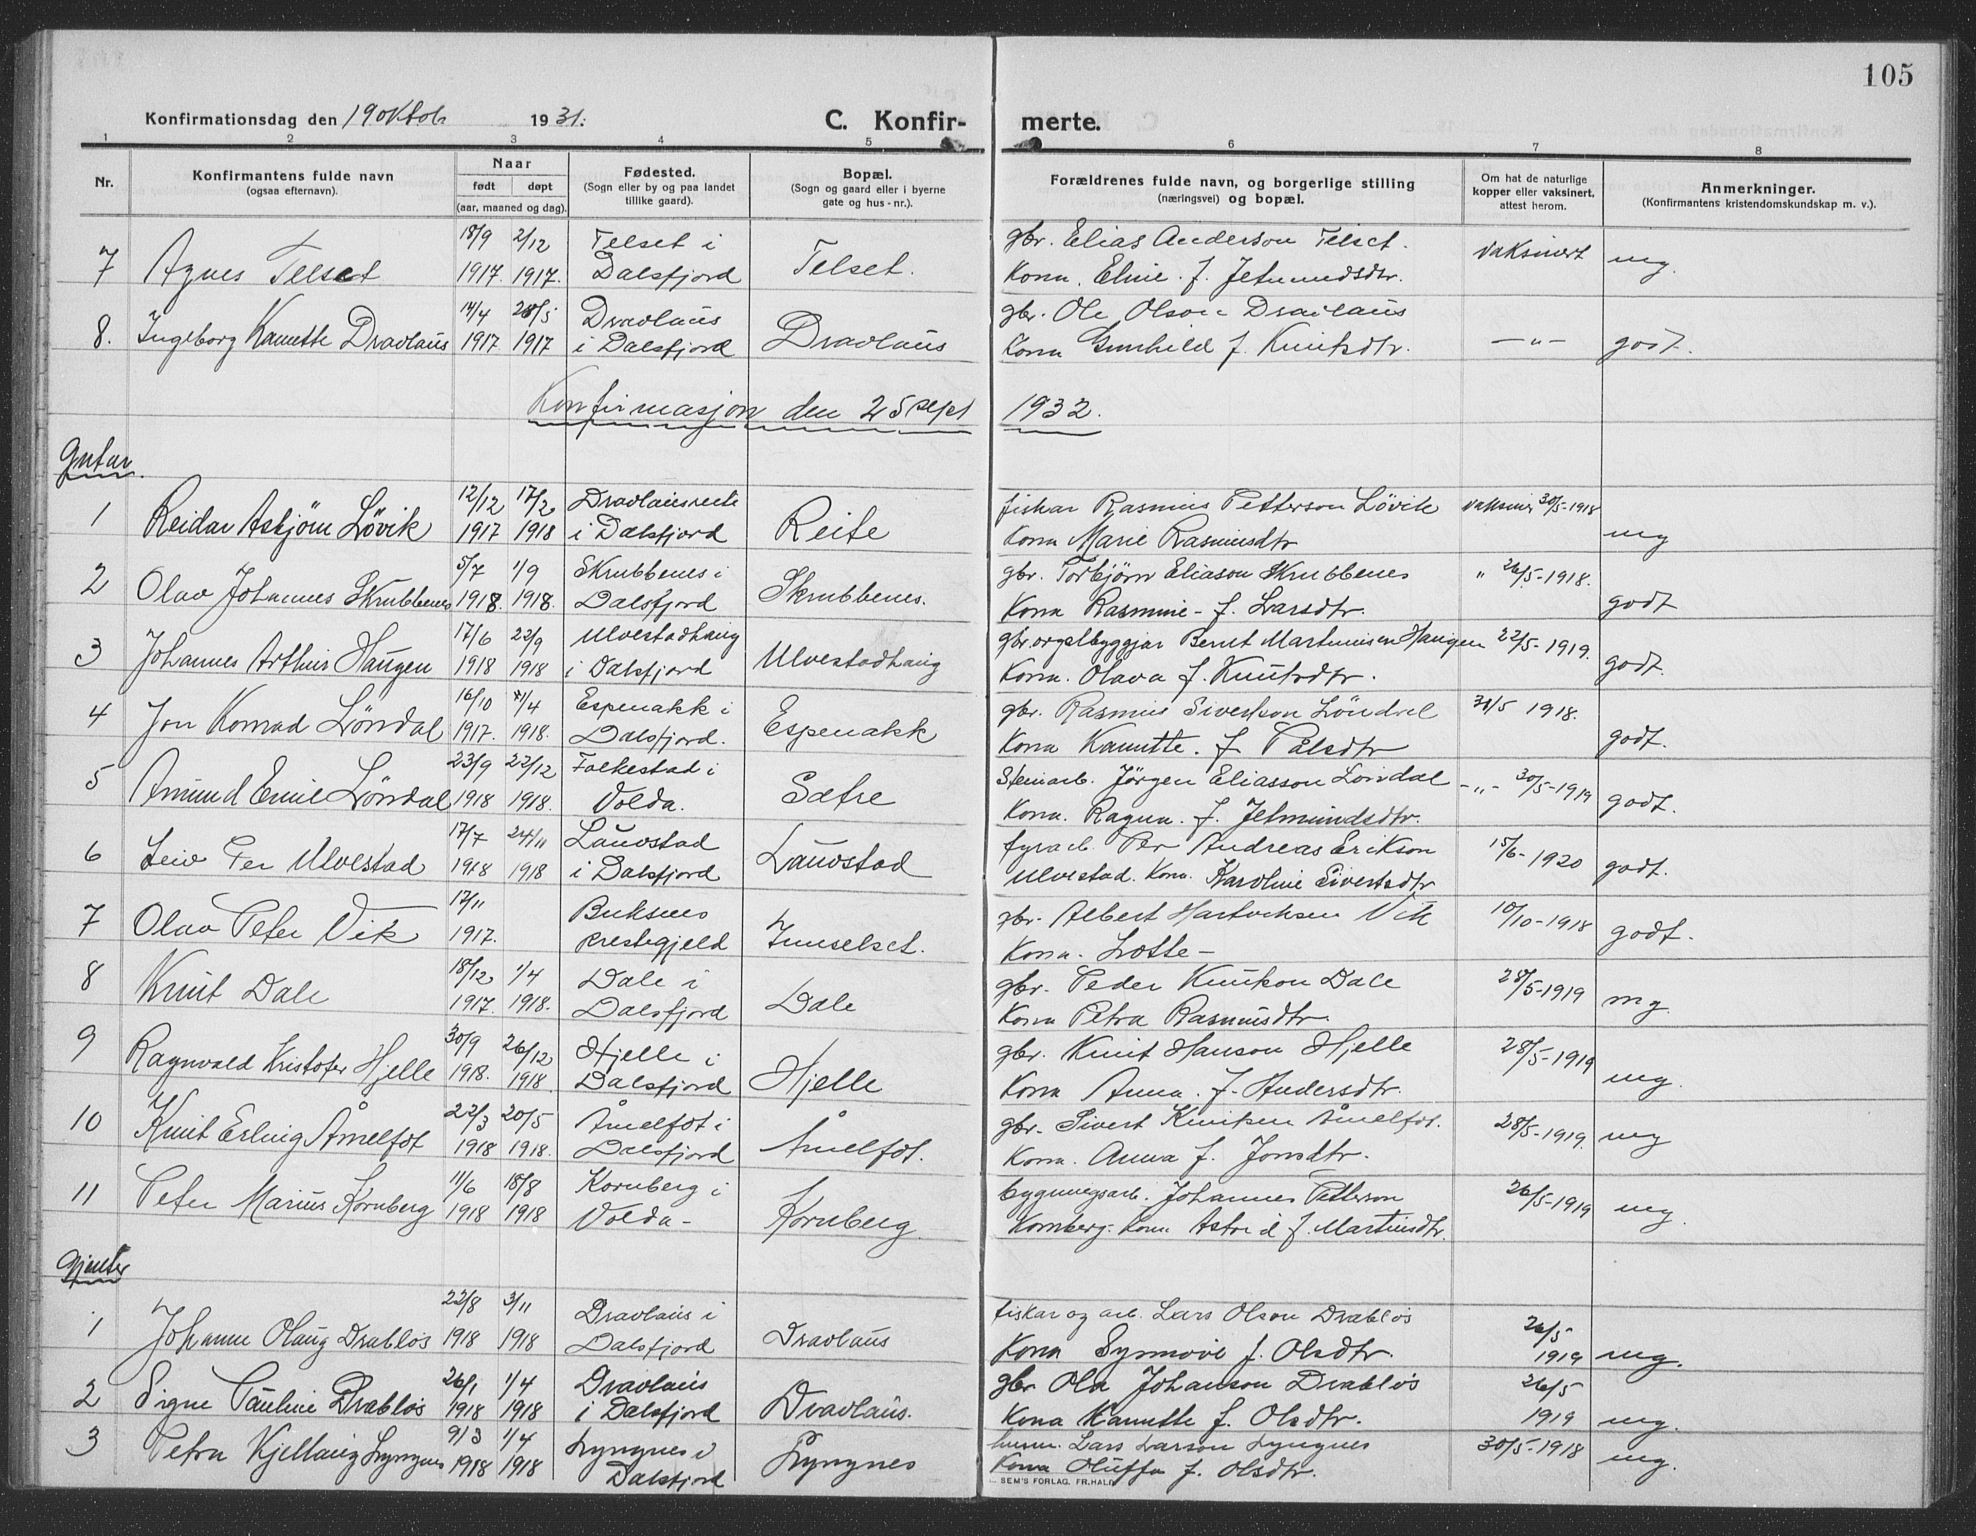 105
Konfirmationsdag den 19 Oktob. 1931.
C. Konfir- merte.
1 2 3 4 5 6 7 8
Nr.
Konfirmantens fulde navn
(ogsaa efternavn).
Naar
født døpt
(aar, maaned og dag).
Fødested.
(Sogn eller by og paa landet
tillike gaard).
Bopæl.
(Sogn og gaard eller i byerne
gate og hus-nr.).
Forældrenes fulde navn, og borgerlige stilling
(næringsvei) og bopæl.
Om hat de naturlige
kopper eller vaksinert,
attest herom.
Anmerkninger.
(Konfirmantens kristendomskundskap m. v.).
18/9 2/12 Telset i gbr. Elias Anderson Telset.
7 Agnes Telset 1917. 1917. Dalsfjord Telset. Kona. Eline. f. Jetmundsdtr. vaksinert mg.
14/4 28/5 Dravlaus gbr. Ole Olson Dravlaus
8. Ingeborg Kanutte Dravlaus 1917 1917 i Dalsfjord Dravlaus Kona Gunhild f. Knutsdtr. —"— godt.
Konfirmasjon den 25 sept 1932.
Gutar.
12/12 17/2 Dravlausreite fiskar Rasmus Petterson Løvik vaksiner 30/5-1918
1 Reidar Asbjörn Løvik 1917 1918 i Dalsfjord Reite Kona Marie Rasmusdtr mg
5/7 1/9 Skrubbenes i gbr. Torbjörn Eliason Skrubbenes " 26/5-1918.
2 Olav Johannes Skrubbenes 1918. 1918. Dalsfjord Skrubbenes. Kona Rasmine - f. Larsdtr. godt
17/6 22/9 Ulvestadhaug gbr. orgelbyggjar Bernt Martinusen Haugen 22/5-1919.
3 Johannes Arthur Haugen 1918 1918 i Dalsfjord Ulvestadhaug Kona. Olava f. Knutsdtr. godt.
16/10 /4 Espenakk i gbr. Rasmus Sivertson Løndal 31/5 1918.
4 Jon Konrad Løndal 1917. 1918. Dalsfjord. Espenakk Kona Kanutte. f. Pålsdtr godt.
23/9 22/12 Folkestad i Steinarb. Jørgen Eliasson Løndal —"— 30/5-1919
5 Amund Emil Løndal 1918 1918. Volda. Sætre Kona. Ragna. f. Jetmundsdtr. godt.
17/7 24/11 Lauvstad fyrarb. Per Andreas Erikson 15/6-1920
6 Leiv Per Ulvestad 1918 1918 i Dalsfjord Lauvstad Ulvestad. Kona. Karoline Sivertsdtr godt.
17/11 Buksnes gbr. Albert Hartvksen Vik 10/10-1918
7 Olav Peter Vik 1917. prestegjeld Innselset. Kona. Lotte - godt.
18/12 1/4 Dale i gbr. Peder Knutson Dale 28/5-1919
8 Knut Dale 1917. 1918. Dalsfjord Dale Kona Petra Rasmusdtr. mg
30/9 26/12 Hjelle i gbr. Knut Hanson Hjelle 28/5-1919
9 Ragnvald Kristofer Hjelle 1918. 1918 Dalsfjord Hjelle Kona Anna. f. Andersdtr. mg.
22/3 20/5 Åmelfot i gbr. Sivert Knutsen Åmelfot. 28/5-1919.
10 Knut Erling Åmelfot 1918 1918. Dalsfjord Åmelfot. Kona. Anna f. Jonsdtr. mg
11/6 18/8 Kornberg i bygningsarb. Johannes Petterson 26/5-1919
11 Peter Marius Kornberg 1918 1918 Volda - Kornberg. Kornberg. Kona Astrid f. Martinsdtr. mg.
Gjenter
22/8 3/11 Dravlaus i fiskar og arb. Lars Olson Drabløs 26/5
1 Johanne Olaug Drabløs 1918 1918 Dalsfjord Dravlaus Kona Synnøve f. Olsdtr. 1919 mg.
26/1 1/4 Dravlaus gbr Ola Johanson Drabløs 26/5
2 Signe Pauline Drabløs 1918 1918 i Dalsfjord Dravlaus. Kona Kanutte f. Olsdtr. 1919 mg.
9/3 1/4 Lyngnes i husm. Lars Larson Lyngnes 30/5-1918
3 Petra Kjellaug Lyngnes 1918 1918 Dalsfjord Lyngnes Kona Oluffa f. Olsdtr. mg.
SEM'S FORLAG, FR.HALD